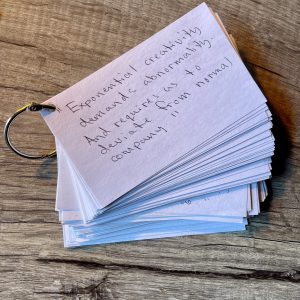 "Exponential creativity
demands abnormality.
And requires us to
deviate from normal
company"